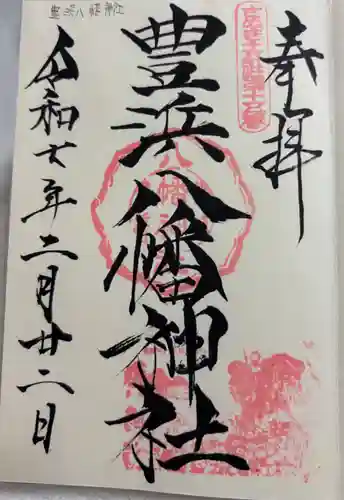 奉拝
豊浜八幡神社
令和七年二月廿二日
豊浜八幡神社